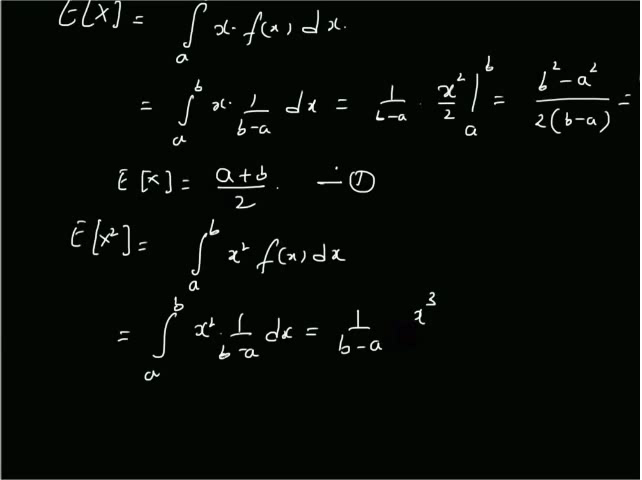 E[X] = ∫ₐ x · f(x) dx.
= ∫ₐᵇ x · 1/(b-a) dx = 1/(b-a) · x²/2 |ₐᵇ = (b² - a²)/(2(b-a)) =
E[X] = (a+b)/2 . — ①
E[X²] = ∫ₐᵇ x² f(x) dx
= ∫ₐᵇ x² · 1/(b-a) dx = 1/(b-a) x³